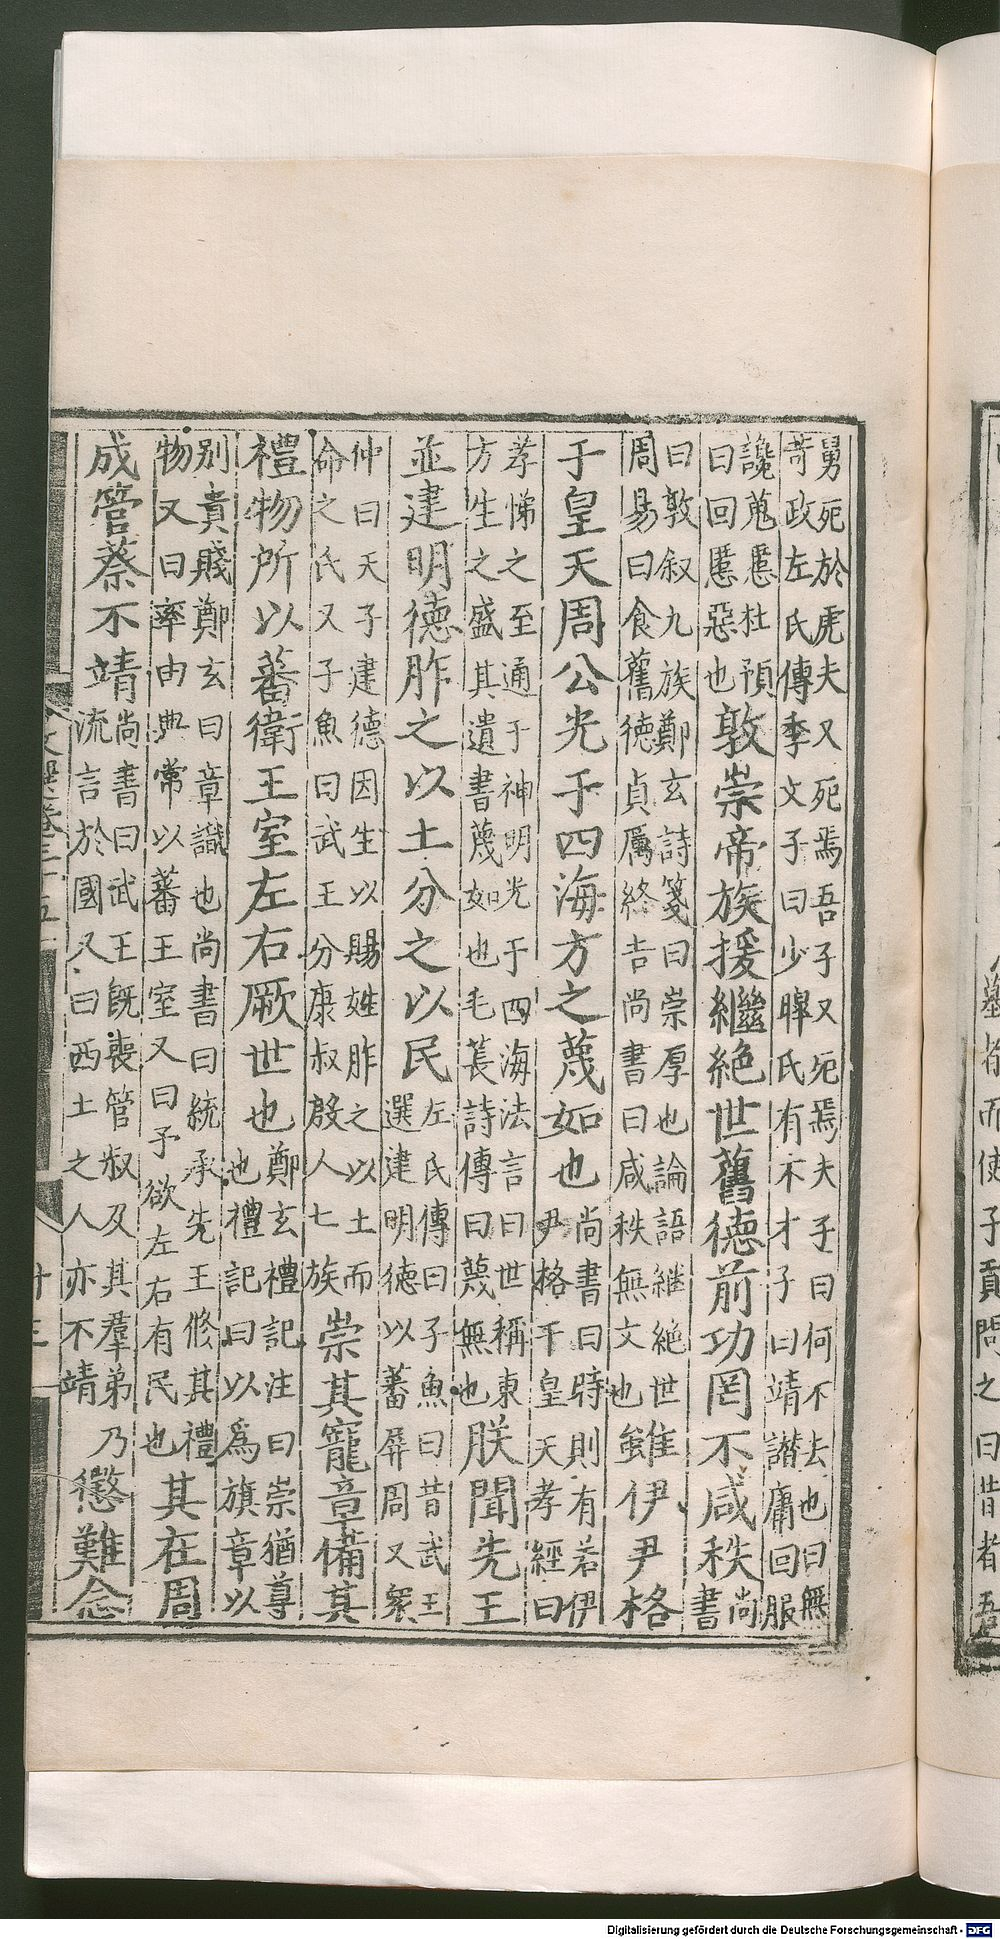 舅死於虎夫又死焉吾子又死焉夫子曰何不去也曰無
苛政左氏傳季文子曰少皡氏有不才子曰靖譖庸回服
讒蒐慝杜預
曰回慝惡也
敦崇帝族援繼絕世舊德前功罔不咸秩
尚
書
曰敦叙九族鄭玄詩箋曰崇厚也論語継絶世
周易曰食舊德貞厲終吉尚書曰咸秩無文也
雖伊尹格
于皇天周公光于四海方之蔑如也
尚書曰時則有若伊
尹格于皇天孝經曰
孝悌之至通于神明光于四海法言曰世稱東
方生之盛其遺書蔑如也毛萇詩傳曰蔑無也
朕聞先王
並建明德胙之以土分之以民
左氏傳曰子魚曰昔武王
選建明德以蕃屏周又衆
仲曰天子建德因生以賜姓胙之以土而
命之氏又子魚曰武王分康叔殷人七族
崇其寵章備其
禮物所以蕃衛王室左右厥世也
鄭玄禮記注曰崇猶尊
也禮記曰以爲旗章以
别貴賤鄭玄曰章識也尚書曰統承先王修其禮
物又曰率由典常以蕃王室又曰予欲左右有民也
其在周
成管蔡不靖
尚書曰武王旣喪管叔及其羣弟乃
流言於國又曰西土之人亦不靖
懲難念
文選卷三十五
廿三
而使子貢問之曰昔者吾
Digitalisierung gefördert durch die Deutsche Forschungsgemeinschaft - DFG